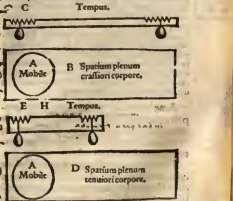 C Tempus.
A
Mobile
B Spatium plenum
crassiori corpore.
E H Tempus.
A
Mobile
D Spatium plenum
tenuiori corpore.